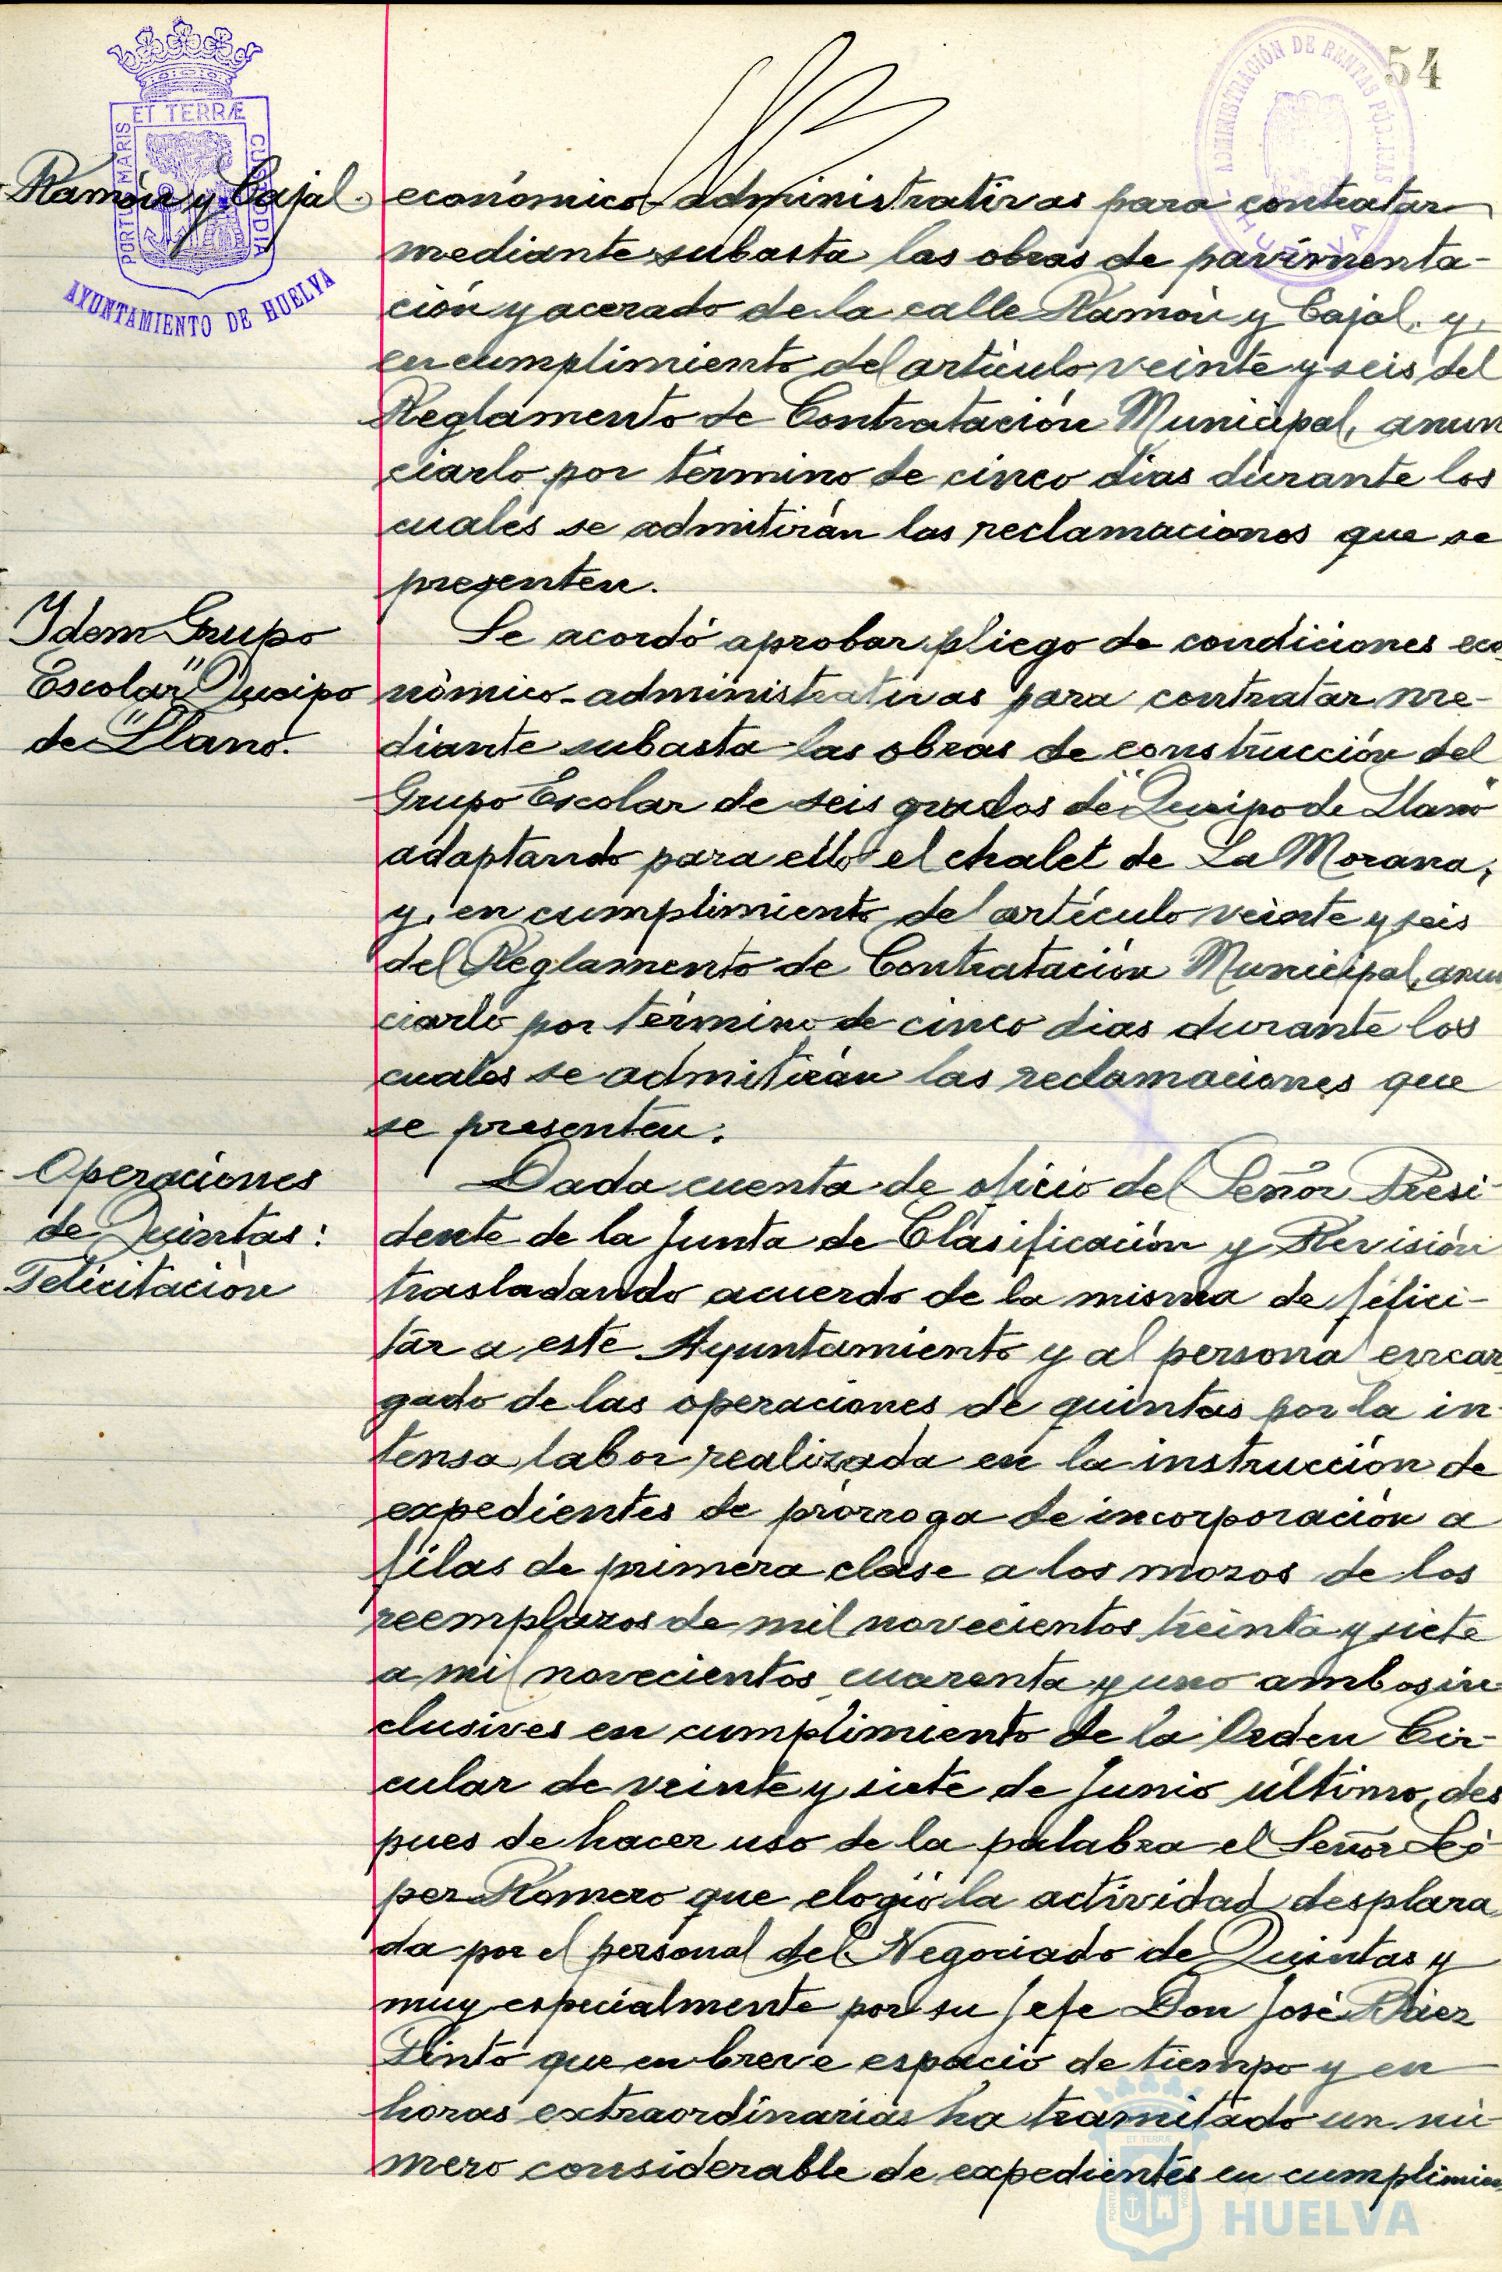 54
ET TERRÆ
PORTUS MARIS
CUSTODIA
AYUNTAMIENTO DE HUELVA
ADMINISTRACIÓN DE RENTAS PÚBLICAS
HUELVA
Ramón y Cajal.
económico-administrativas para contratar
mediante subasta las obras de pavimenta-
ción y acerado de la calle Ramón y Cajal, y,
en cumplimiento del artículo veinte y seis del
Reglamento de Contratación Municipal, anun
ciarlo por término de cinco dias durante los
cuales se admitirán las reclamaciones que se
presenten.
Idem Grupo
Escolar "Queipo
de Llano".
Se acordó aprobar pliego de condiciones eco
nómico-administrativas para contratar me-
diante subasta las obras de construcción del
Grupo Escolar de seis grados de "Queipo de Llano"
adaptando para ello el chalet de La Morana,
y, en cumplimiento del artículo veinte y seis
del Reglamento de Contratación Municipal, anun
ciarlo por término de cinco dias durante los
cuales se admitirán las reclamaciones que
se presenten.
Operaciones
de Quintas:
Felicitación
Dada cuenta de oficio del Señor Presi-
dente de la Junta de Clasificación y Revisión
trasladando acuerdo de la misma de felici-
tar a este Ayuntamiento y al personal encar
gado de las operaciones de quintas por la in-
tensa labor realizada en la instrucción de
expedientes de prórroga de incorporación a
filas de primera clase a los mozos de los
reemplazos de mil novecientos treinta y siete
a mil novecientos cuarenta y uno ambos in-
clusives en cumplimiento de la Orden Cir-
cular de veinte y siete de Junio último, des
pues de hacer uso de la palabra el Señor Ló-
pez Romero que elogió la actividad desplaza
da por el personal del Negociado de Quintas y
muy especialmente por su Jefe Don José
Pinto que en breve espacio de tiempo y en
horas extraordinarias ha tramitado un nú-
mero considerable de expedientes en cumplimien
HUELVA